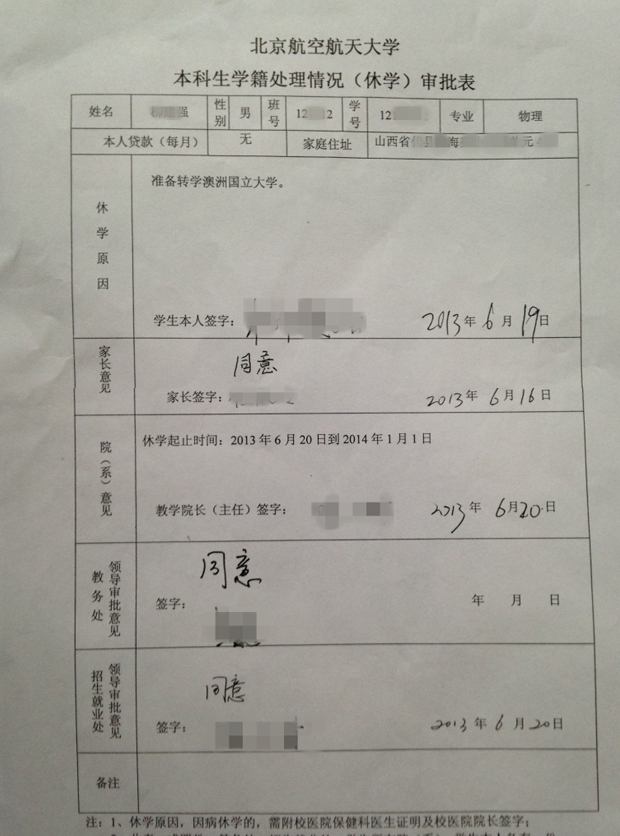 北京航空航天大学
本科生学籍处理情况（休学）审批表
姓名 强 性别 男 班号 12 2 学号 12 专业 物理
本人贷款（每月） 无 家庭住址 山西省 县 海 单元
休学原因 准备转学澳洲国立大学。
学生本人签字： 2013年 6月 19日
家长意见 同意
家长签字： 2013年 6月16日
院（系）意见 休学起止时间：2013年6月20日到2014年1月1日
教学院长（主任）签字： 2013年 6月20日
教务处领导审批意见 同意
签字： 年 月 日
招生就业处领导审批意见 同意
签字： 2013年 6月20日
备注
注：1、休学原因，因病休学的，需附校医院保健科医生证明及校医院院长签字；